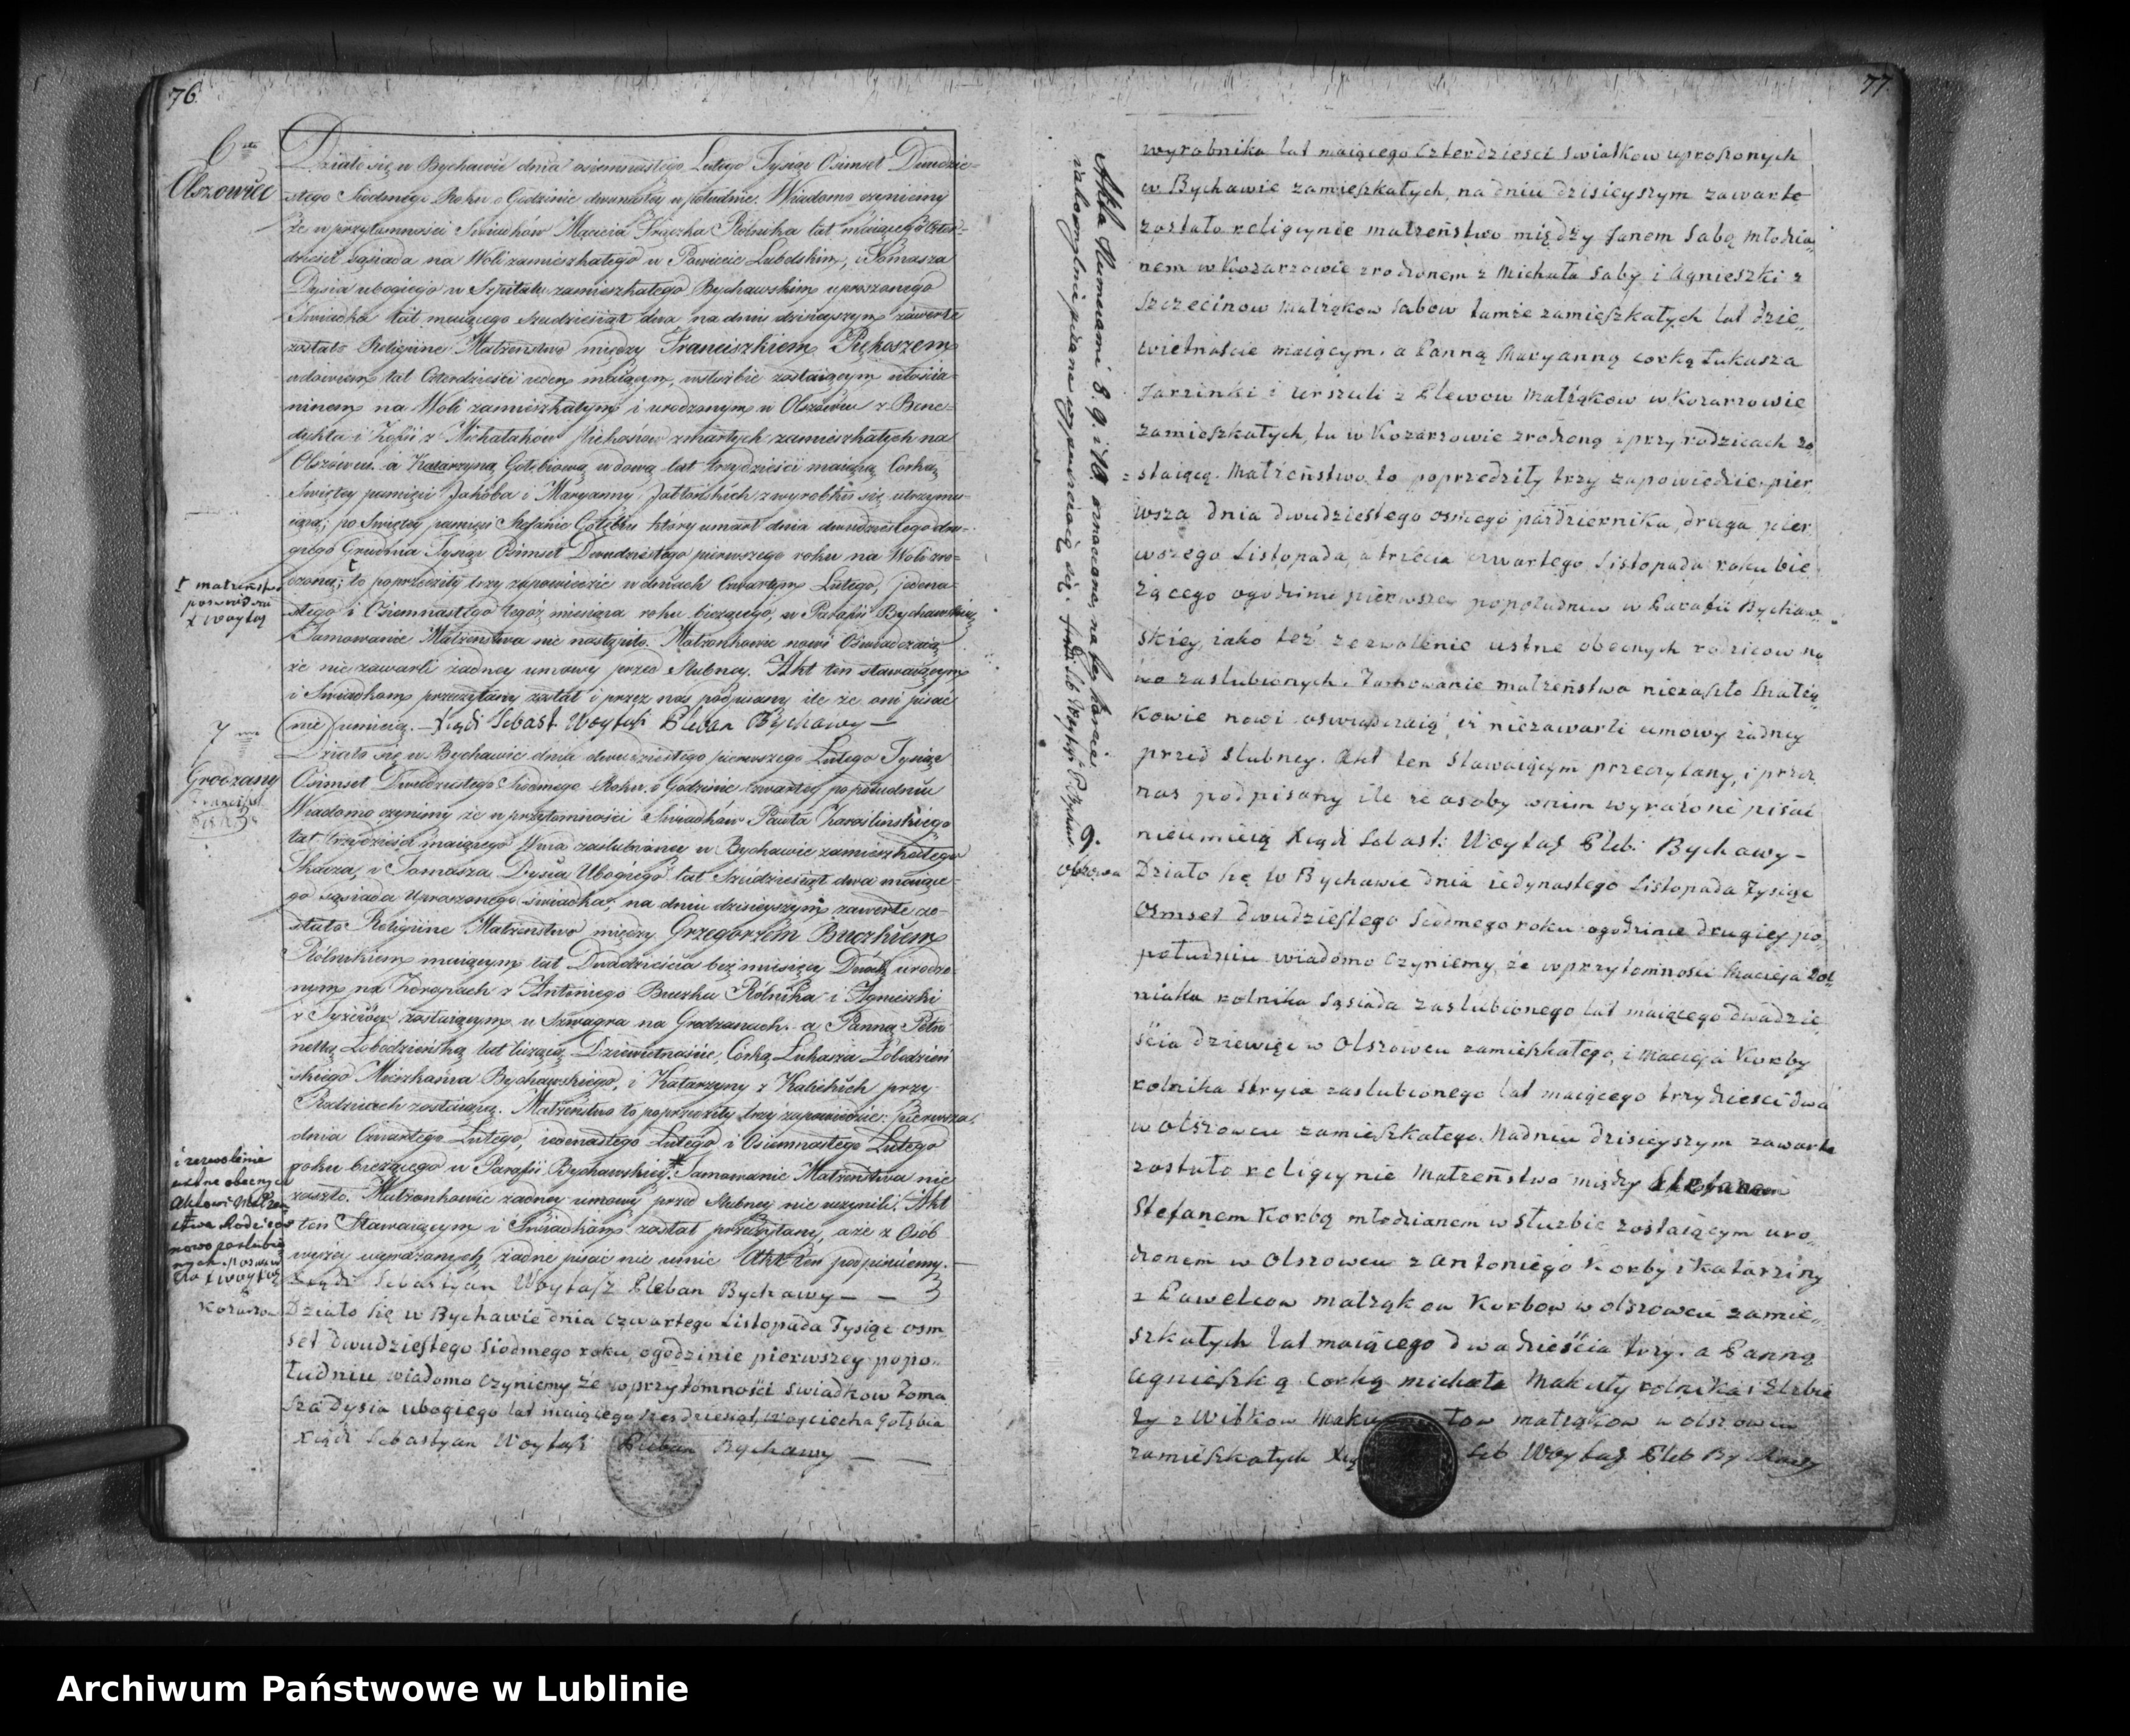 76
6ta
Olszowiec
Działo się w Bychawie dnia osiemnastego Lutego Tysiąc Ośmset Dwudzie-
stego Siodmego Roku o Godzinie dwunastey w południe. Wiadomo czyniemy
że w przytomności Świadków Macieia Frączka Rolnika lat maiącego Czter-
dzieści Sąsiada na Woli zamieszkałego w Powiecie Lubelskim, i Tomasza
Dysia ubogiego w Szpitalu zamieszkałego Bychawskim uproszonego
Świadka lat maiącego sześdziesiąt dwa na dniu dzisieyszym zawarte
zostało Religiine Małżeństwo między Franciszkiem Piękoszem
wdowcem lat Czterdzieści ieden maiącym, w służbie zostaiącym włościa-
ninem na Woli zamieszkałym i urodzonym w Olszowcu z Bene-
dykta i Zofii z Michalaków Piekosiow zmarłych zamieszkałych na
Olszowcu. a Katarzyną Gołębiową wdową lat trzydzieści maiącą Córką
Świętey pamięci Jakóba i Maryanny Jabłońskich z wyrobku się utrzymu-
iącą; po Świętey pamięci Stefanie Gołębiu który umarł dnia dwudziestego dru-
giego Grudnia Tysiąc Ośmset Dwudziestego pierwszego roku na Woli zro-
dzoną; to poprzedziły trzy zapowiedzie w dniach Czwartym Lutego, jedena-
stego i Osiemnastego tegóż miesiąca roku bieżącego, w Parafii Bychawskiey
Tamowanie Małżeństwa nie nastąpiło. Małżonkowie nowi Oświadczaią
że nie zawarli żadney umowy przed Slubney. Akt ten stawaiącym
i Świadkom przeczytany został i przez nas podpisany ile że oni pisać
nie umieią. Xiądz Sebast Woytaś Pleban Bychawy
ł małżeństwo
poswiadcza
X Woytaś
7ma
Grodzany
Działo się w Bychawie dnia dwudziestego pierwszego Lutego Tysiąc
Ośmset Dwudziestego Siodmego Roku o Godzinie czwartey popołudniu
Wiadomo czyniemy że w przytomności Świadków Pawła Karaślińskiego
lat trzydzieści maiącego Wuia zaślubioney w Bychawie zamieszkałego
Tkacza, i Tomasza Dysia Ubogiego lat Sześdziesiąt dwa maiące-
go sąsiada Uproszonego świadka, na dniu dzisieyszym zawarte zo-
stało Religiine Małżeństwo między Grzegorzem Buczkiem
Rolnikiem maiącym lat Dwadzieścia bez miesięcy Dwóch urodzo-
nym na Zdrapach z Antoniego Buczka Rólnika i Agnieszki
z zostaiącym u Szwagra na Grodzanach. a Panną Petro-
nellą Łobodzieńską lat liczącą Dziewietnaście Córką Łukasza Łobodzień
skiego Mieszkańca Bychawskiego, i Katarzyny z Kalickich przy
Rodzicach zostaiącą. Małżeństwo to poprzedziły trzy zapowiedzie: Pierwsza,
dnia Czwartego Lutego, iedenastego Lutego i Osiemnastego Lutego
roku bieżącego w Parafii Bychawskiey. Tamowanie Małżeństwa nie
zaszło. Małżonkowie żadney umowy przed slubney nie uczynili. Akt
ten Stawaiącym i Świadkom został przeczytany, a że z Osób
wyżey wyrażonych żadne pisać nie umie Akt ten podpisuiemy.
Xiądz Sebastyan Woytaś Pleban Bychawy
i zezwolenie
ustne obecnych
Aktowi Małżen
stwa Rodzicow
nowo zaślubio
nych
X Woytaś
8
Kozarzow
Działo się w Bychawie dnia czwartego Listopada Tysiąc osm
set dwudziestego siodmego roku, ogodzinie pierwszey popo„
ludniu wiadomo czyniemy że w przytomności świadkow Toma
sza Dysia ubogiego lat maiącego szesdziesiąt, Woyciecha Gołębia
Xiądz Sebastyan Woytaś Pleban Bychawy
77
Akta Numerami 8. 9. i 10. oznaczone, na tey karcie
wyrobnika lat maiącego czterdziesci swiatkow uproszonych
w Bychawie zamieszkałych, na dniu dzisieyszym zawarte
zostało religiynie małżeństwo między Janem Sabą młodzia„
nem w Kozarzowie zrodzonem z Michała Saby i Agnieszki z
Szczecinow małżąkow Sabow tamże zamieszkałych lat dzie„
wietnaście maiącym. a Panną Maryanną corką Łukasza
Jarzinki i Urszuli z Plewow Małżąkow w Kozarzowie
zamieszkałych, tu w Kozarzowie zrodzoną i przy rodzicach zo
staiącą. Małżeństwo to poprzedziły trzy zapowiedzie, pier
wsza dnia dwudziestego osmego październiku, druga pier
wszego Listopada, a trzecia czwartego Listopada roku bie
żącego ogodzinie pierwszey popołudniu w Parafii Bychaw„
skiey, iako też zezwolenie ustne obecnych rodzicow no
wo zaslubionych. Tamowanie małżeństwa niezaszło Małżą„
kowie nowi oswiadczaią iż niezawarli umowy żadney
przed slubney. Akt ten stawaiącym przeczytany, i przez
nas podpisany ile że osoby wnim wyrażone pisać
nieumieią Xiądz Sebast: Woytaś Pleb: Bychawy
9.
Olszowa
Działo się w Bychawie dnia iedynastego Listopada Tysiąc
osmset dwudziestego siodmego roku ogodzinie drugiey po„
południu wiadomo czyniemy, że wprzytomności Macieja Zol„
niaka rolnika sąsiada zaslubionego lat maiącego dwadzie
ścia dziewięc w Olszowcu zamieszkałego, i Macieja Korby
rolnika stryia zaslubionego lat maiącego trzydziesci dwa
w olszowcu zamieszkałego. Na dniu dzisieyszym zawarte
zostało religiynie Małżeństwo między
Stefanem Korbą młodzianem w służbie zostaiącym uro„
dzonem w Olszowcu z Antoniego Korby i Katarziny
z Pawelcow małżąkow Korbow w olszowcu zamie„
szkałych lat maiącego dwadzieścia trzy. a Panną
Agnieszką corką Michała Makuły rolnika i Elzbie
ty z Witkow Maku łow małżąkow w olszowcu
zamieszkałych Xią Seb Woytaś Pleb Bychawy
Archiwum Państwowe w Lublinie